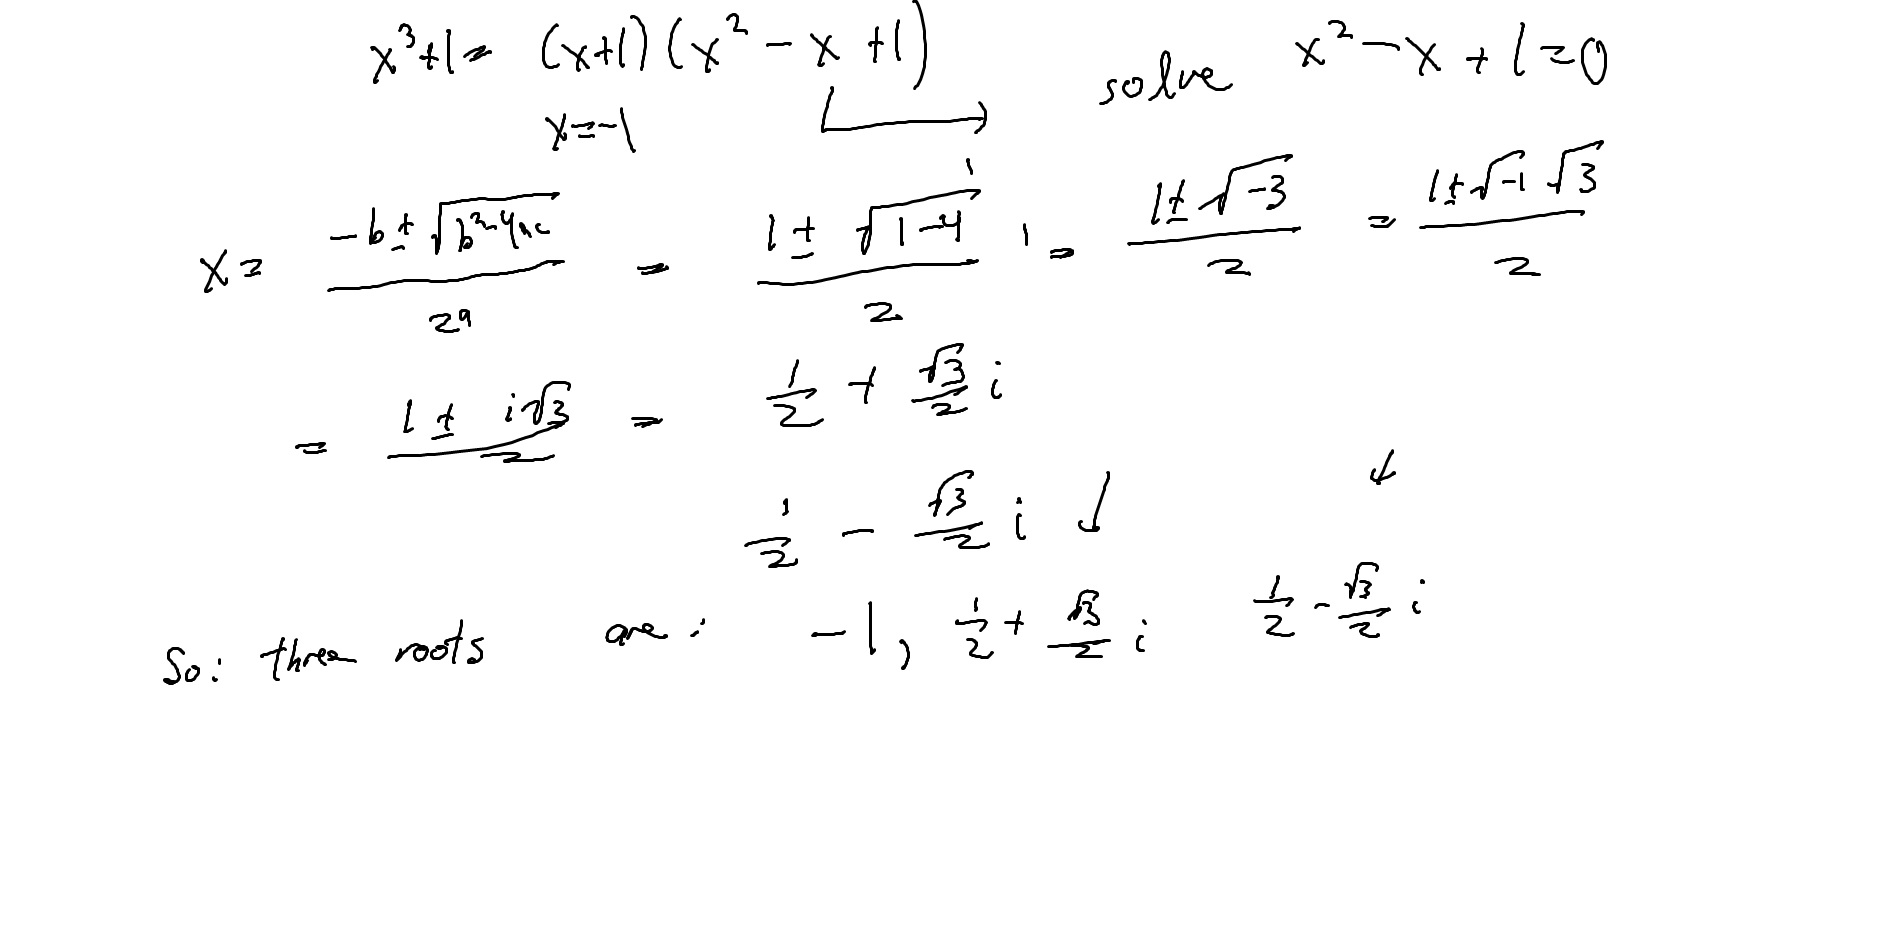 x³+1= (x+1)(x² - x +1) solve x² - x + 1 = 0
x=-1
x = (-b ± √(b²-4ac))/2a = (1 ± √(1-4))/2 = (1± √-3)/2 = (1±√-1 √3)/2
= (1 ± i√3)/2 = 1/2 + √3/2 i
1/2 - √3/2 i ↓ ↓
So: three roots are: -1, 1/2 + √3/2 i 1/2 - √3/2 i